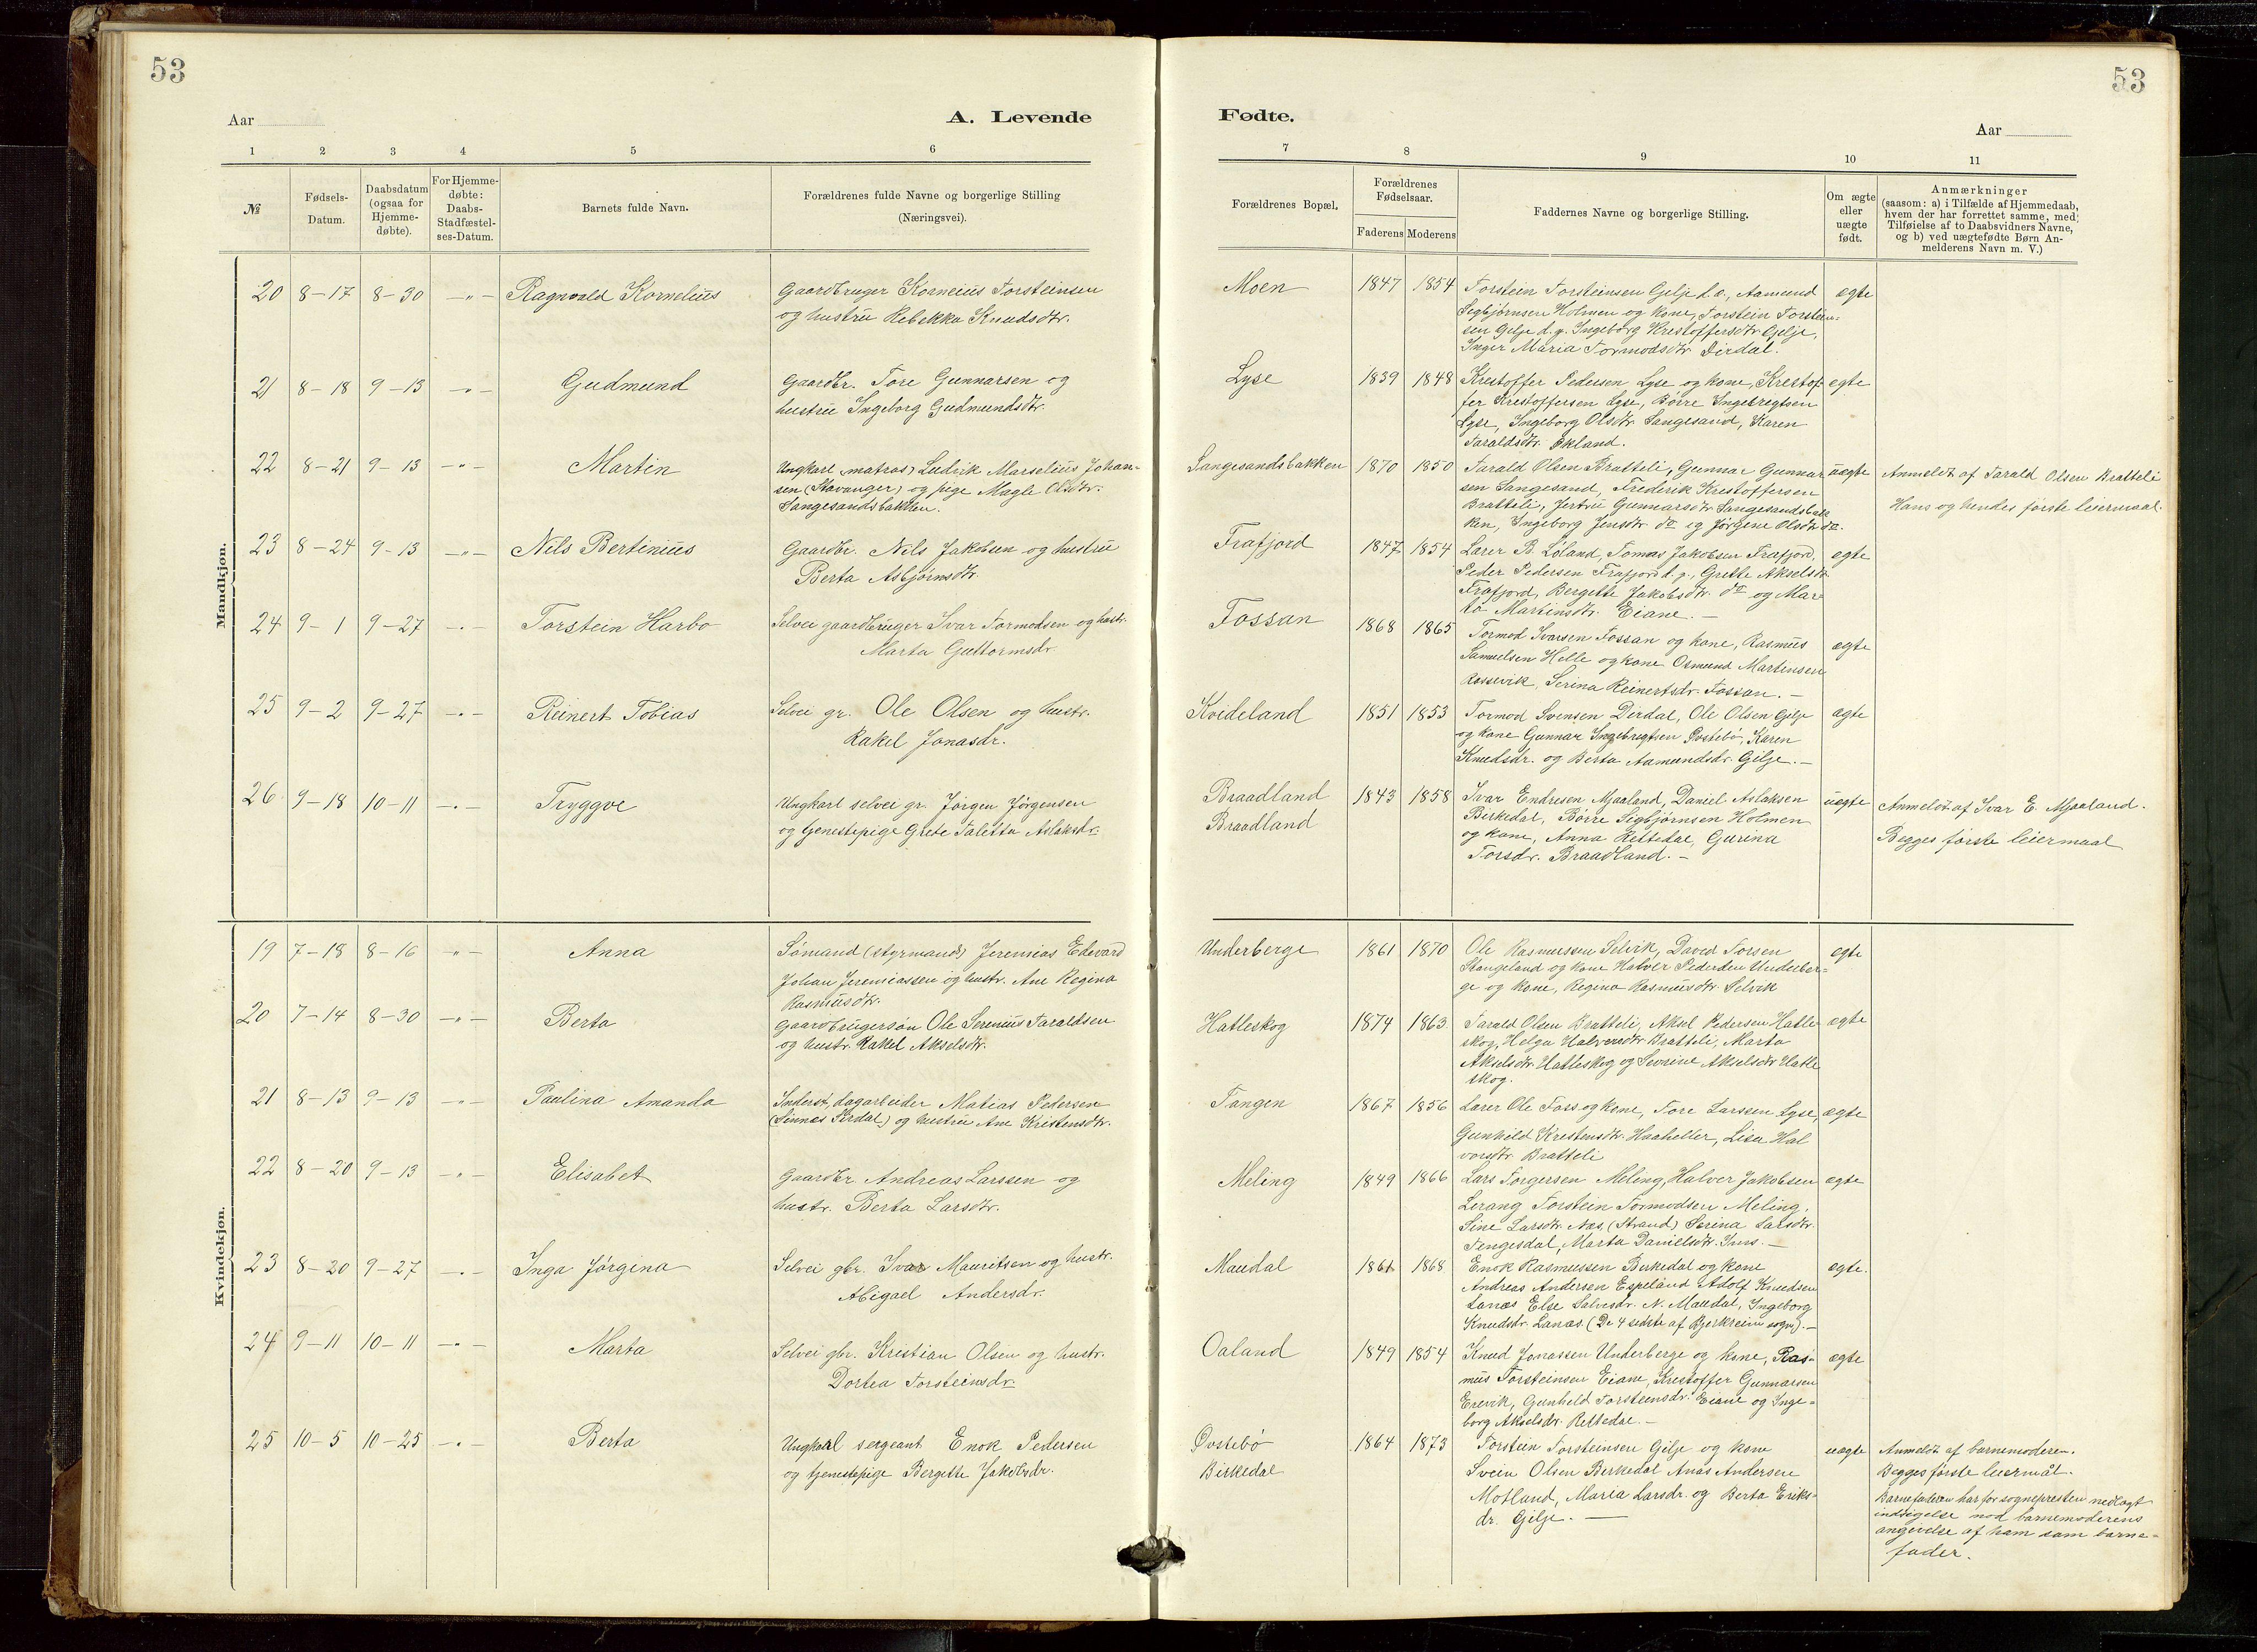 53
53
Aar
A. Levende
Fødte.
Aar
1 2 3 4 5 6
7 8 9 10 11
№
Fødsels-
Datum.
Daabsdatum
(ogsaa for
Hjemme-
døbte).
For Hjemme-
døbte:
Daabs-
Stadfæstel-
ses-Datum.
Barnets fulde Navn.
Forældrenes fulde Navne og borgerlige Stilling
(Næringsvei).
Forældrenes Bopæl.
Forældrenes
Fødselsaar.
Faderens Moderens
Faddernes Navne og borgerlige Stilling.
Om ægte
eller
uægte
født.
Anmærkninger
(saasom: a) i Tilfælde af Hjemmedaab,
hvem der har forrettet samme, med
Tilføielse af to Daabsvidners Navne,
og b) ved uægtefødte Børn An-
melderens Navn m. V.)
Mandkjøn.
20 8-17 8-30 -"- Ragnvald Kornelius
Gaardbruger Korneius Torsteinsen
og hustru Rebekka Knudsdtr.
Moen 1847 1854
Torstein Torsteinsen Gilje d. æ., Aamund
Sigbjørnsen Holmen og kone, Torstein Torstein-
sen Gilje d. y. Ingeborg Krestoffersdtr. Gilje,
Inger Maria Tormodsdtr. Dirdal.
ægte
21 8-18 9-13 -"- Gudmund
Gaardbr. Tore Gunnarsen og
hustru Ingeborg Gudmundsdtr.
Lyse 1839 1848
Krestoffer Pedersen Lyse og kone, Krestof-
fer Krestoffersen Lyse, Børre Ingebregtsen
Lyse, Ingeborg Olsdtr. Sangesand, Karen
Taraldsdtr. Økland.
egte
22 8-21 9-13 -"- Martin
Ungkarl (matros) Ludvik Marselius Johan-
sen (Stavanger) og pige Magle Olsdtr.
Sangesandsbakken.
Sangesandsbakken 1870 1850
Tarald Olsen Bratteli, Gunnar Gunnar
sen Sangesand, Frederik Krestoffersen
Bratteli, Jertru Gunnarsdtr. Sangesandsbak
ken, Ingeborg Jensdtr. do og Jørgine Olsdtr. do.
uægte
Anmeldt af Tarald Olsen Bratteli
Hans og hendes første leiermaal.
23 8-24 9-13 -"- Nils Bertinius
Gaardbr. Nils Jakobsen og hustru
Berta Asbjørnsdtr.
Frafjord 1847 1854
Lærer B. Løland, Tomas Jakobsen Frafjord,
Peder Pedersen Frafjord d. y., Grette Akselsdtr.
Frafjord, Bergitte Jakobsdtr. do og Mar
ta Martinsdtr. Eiane. -
egte
24 9-1 9-27 -"- Torstein Harbo
Selvei gaardbruger Ivar Tormodsen og hustr.
Marta Guttormsdr.
Fossan 1868 1865
Tormod Ivarsen Fossan og kone, Rasmus
Samuelsen Helle og kone Osmund Martinsen
Rossevik, Serina Reinertsdr. Fossan. -
ægte
25 9-2 9-27 -"- Reinert Tobias
Selvei gr. Ole Olsen og hustr.
Rakel Jonasdr.
Kvideland 1851 1853
Tormod Svensen Dirdal, Ole Olsen Gilje
og kone Gunnar Ingebregtsen Østebø, Karen
Knudsdr. og Berta Aamundsdr. Gilje. -
ægte
26 9-18 10-11 -"- Tryggve
Ungkarl selvei gr. Jørgen Jørgensen
og tjenestepige Grete Taletta Aslaksdr.
Braadland
Braadland
1843 1858
Ivar Endresen Mjaaland, Daniel Aslaksen
Birkedal, Børre Sigbjørnsen Holmen
og kone, Anna Rettedal, Gurina
Torsdr. Braadland. -
uegte
Anmeldt af Ivar E. Mjaaland.
Begges første leiermaal
Kvindekjøn.
19 7-18 8-16 -"- Anna
Sømand (styrmand) Jeremias Edevard
Johan Jeremiassen og hustr. Ane Regina
Rasmusdtr.
Underberge 1861 1870
Ole Rasmussen Selvik, David Tossen
Stangeland og kone Halver Pedersen Underber-
ge og kone, Regina Rasmusdtr. Selvik
egte
20 7-14 8-30 -"- Berta
Gaardbrugersøn Ole Serenius Taraldsen
og hustr. Rakel Akselsdtr.
Hatleskog 1874 1863
Tarald Olsen Bratteli, Aksel Pedersen Hatle
skog, Helga Halversdtr. Bratteli, Marta
Akselsdtr. Hatleskog og Severine Akselsdtr. Hatle
skog.
ægte
21 8-13 9-13 -"- Paulina Amanda
Inderst, dagarbeider Matias Pedersen
(Sinnes Sirdal) og hustru Ane Kristensdtr.
Tangen 1867 1856
Lærer Ole Foss og kone, Tore Larssen Lyse,
Gunhild Krestensdtr. Haaheller, Lisa Hal
vorsdtr. Bratteli
ægte
22 8-20 9-13 -"- Elisabet
Gaardbr. Andreas Larssen og
hustr. Berta Larsdtr.
Meling 1849 1866
Lars Torgersen Meling, Halver Jakobsen
Lerang Torstein Tormodsen Meling,
Sine Larsdtr. Næs (Strand) Serina Larsdtr.
Tengesdal, Marta Danielsdtr. Ims. -
ægte
23 8-20 9-27 -"- Inga Jørgina
Selvei gbr. Ivar Mauritsen og hustr.
Abigael Andersdr.
Maudal 1861 1868
Enok Rasmussen Birkedal og kone
Andreas Andersen Espeland Adolf Knudsen
Lanæs Else Salvesdr. N. Maudal, Ingeborg
Knudsdr. Lanæs. (De 4 sidste af Bjerkreim sogn). -
ægte.
24 9-11 10-11 -"- Marta
Selvei gbr. Krestian Olsen og hustr.
Dortea Torsteinsdr.
Oaland 1849 1854
Knud Jonassen Underberge og kone, Ras-
mus Torsteinsen Eiane, Krestoffer Gunnarsen
Erevik, Gunheld Torsteinsdr. Eiane og Inge-
borg Akselsdr. Rettedal. -
ægte
25 10-5 10-25 -"- Berta
Ungkarl sergeant Enok Pedersen
og tjenestepige Bergitte Jakobsdr.
Østebø
Birkedal
1864 1873
Torstein Torsteinsen Gilje og kone
Svein Olsen Birkedal Anas Andersen
Motland, Maria Larsdr. og Berta Eriks-
dr. Gilje. -
uægte
Anmeldt af barnemoderen.
Begges første leiermål.
Barnefaderen har for sognepresten nedlagt
indsigelse mod barnemoderens
angivelse af ham som barne-
fader.